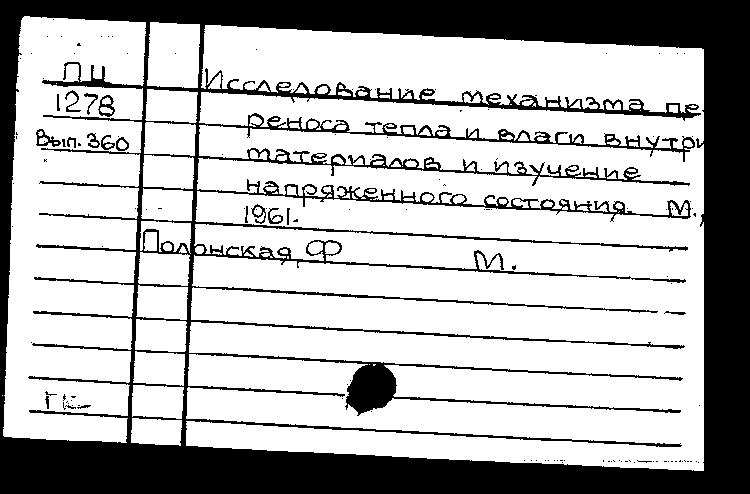 ПЦ
Исследование механизма пе-
1278
реноса тепла и влаги внутри
Вып. 360
материалов и изучение
напряженного состояния. М.,
1961.
Полонская, Ф М.
ГК